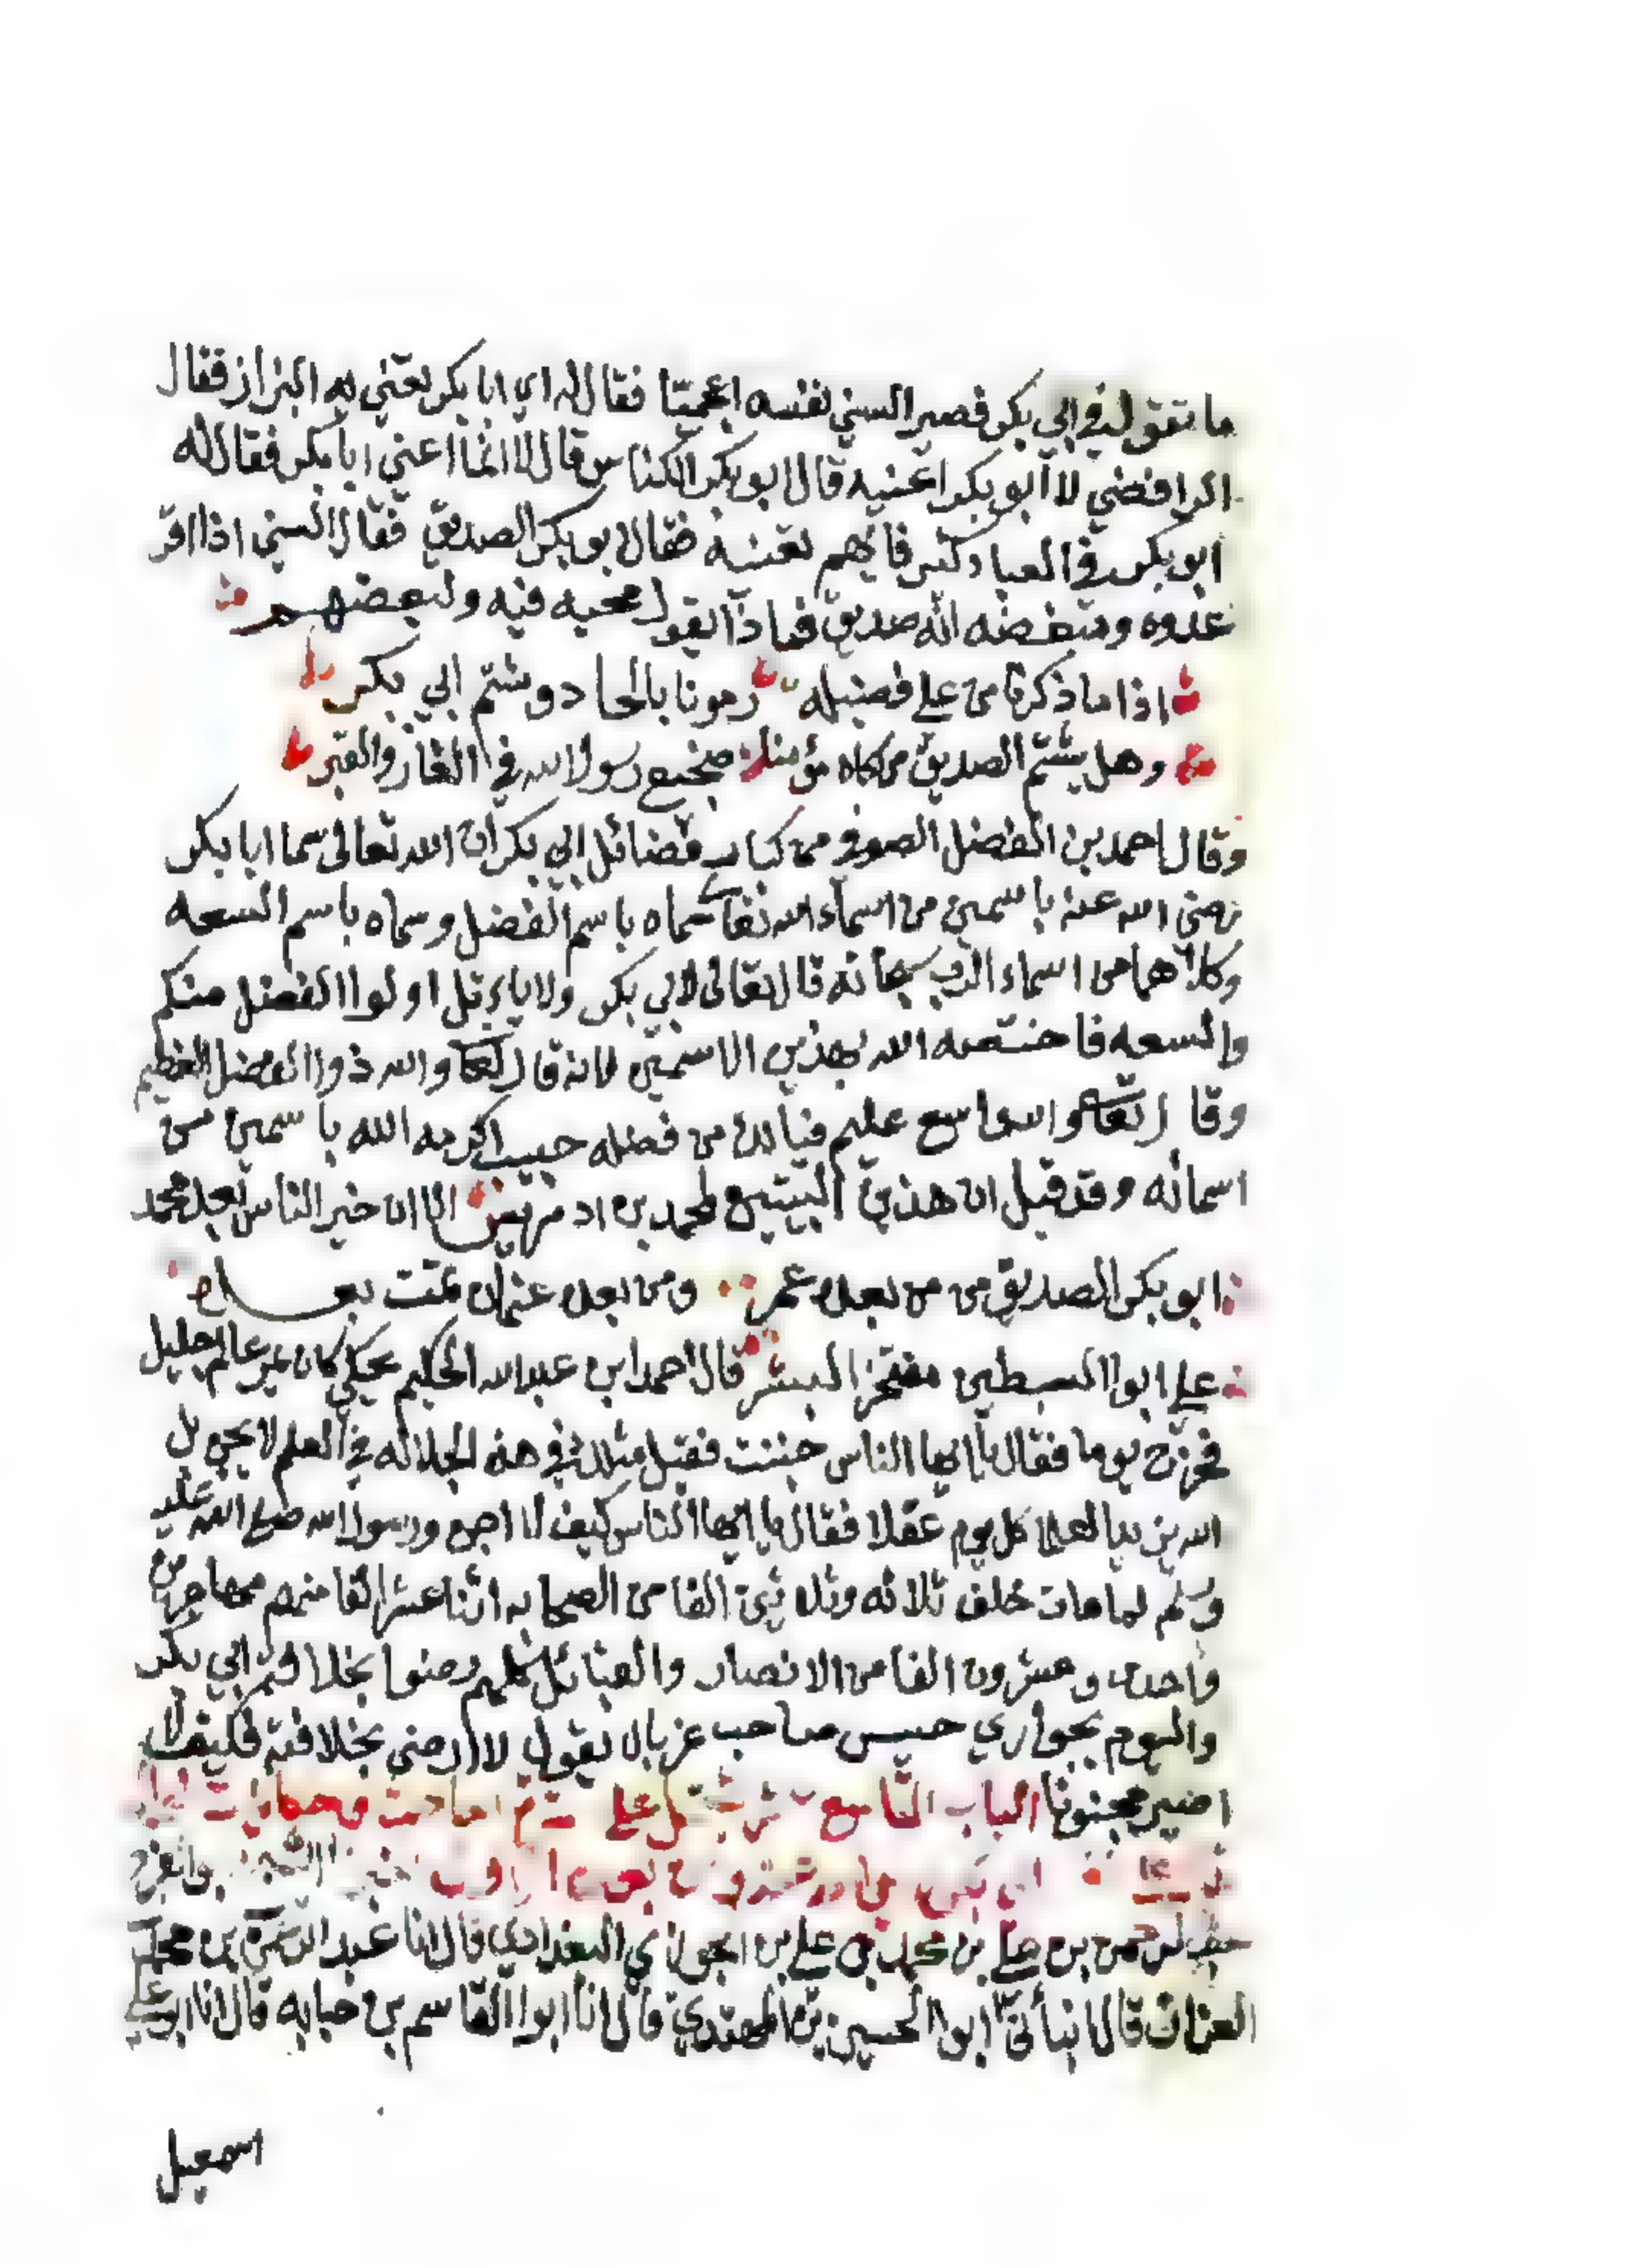 ما تقول في ابي بكر فصير السني نفسه اعجميا فقال له اي ابا بكر تعني به البزاز فقال
الرافضي لا ابو بكر اعنيه قال ابو بكر الكناس قال لا انما اعني ابا بكر فقال له
ابو بكر في العباد كثير فايهم تعنيه فقال ابو بكر الصديق فقال السني اذا اقر
عدوه ومبغضه انه صديق فماذا يقول محبه فيه ولبعضهم
اذا ما ذكرنا من علي فضيله رمونا بالحاد وشتم ابي بكر
وهل يشتم الصديق من كان مؤمنا ضجيع رسول الله في الغار والقبر
وقال احمد بن الفضل الصوفي من كتاب فضائل ابي بكر ان الله تعالى سما ابا بكر
رضى الله عنه باسمين من اسماء الله تعالى سماه باسم الفضل وسماه باسم السعه
وكلاهما من اسماء الرب سبحانه قال تعالى لابي بكر ولا ياءتل اولوا الفضل منكم
والسعه فاختصه الله بهذين الاسمين لانه قال تعالى والله ذوا الفضل العظيم
وقال تعالى والله واسع عليم فيالك من فضله حبيب اكرمه الله باسمين من
اسمائه وقد قيل ان هذين البيتين لمحمد بن اد الا ان خير الناس بعد محمد
ابو بكر الصديق من من بعده عمر ومن بعده عثمان تمت
علي ابوا السبطين مفتخر البشر قال احمد ابن عبد الله الحكيم كان عالم جليل
فخرج يوما فقال يا ايها الناس جننت فقيل مثلك في هذه الجلاله في العلم لا يجن بل
الله يزيد العلما كل يوم عقلا فقال يا ايها الناس كيف لا اجن ورسول الله صلى الله عليه
وسلم لما مات خلف ثلاثه وثلاثين الفا من الصحابه اثنا عشر الفا منهم مهاجرين
واحد وعشرون الفا من الانصار والقبائل كلهم رضوا بخلافة ابي بكر
واليوم بجواري حبيس صاحب غربال يقول لا ارضى بخلافته فكيف لا
اصير مجنونا الباب التاسع عشر
عبد الرحمن بن علي بن محمد بن علي بن الجوزي البغدادي قال انا عبد الرحمن بن محمد
القزاز قال انبأنى ابوا الحسين بن المهتدي قال انا ابوا القاسم بن حبابه قال انا ابو علي
اسمعيل